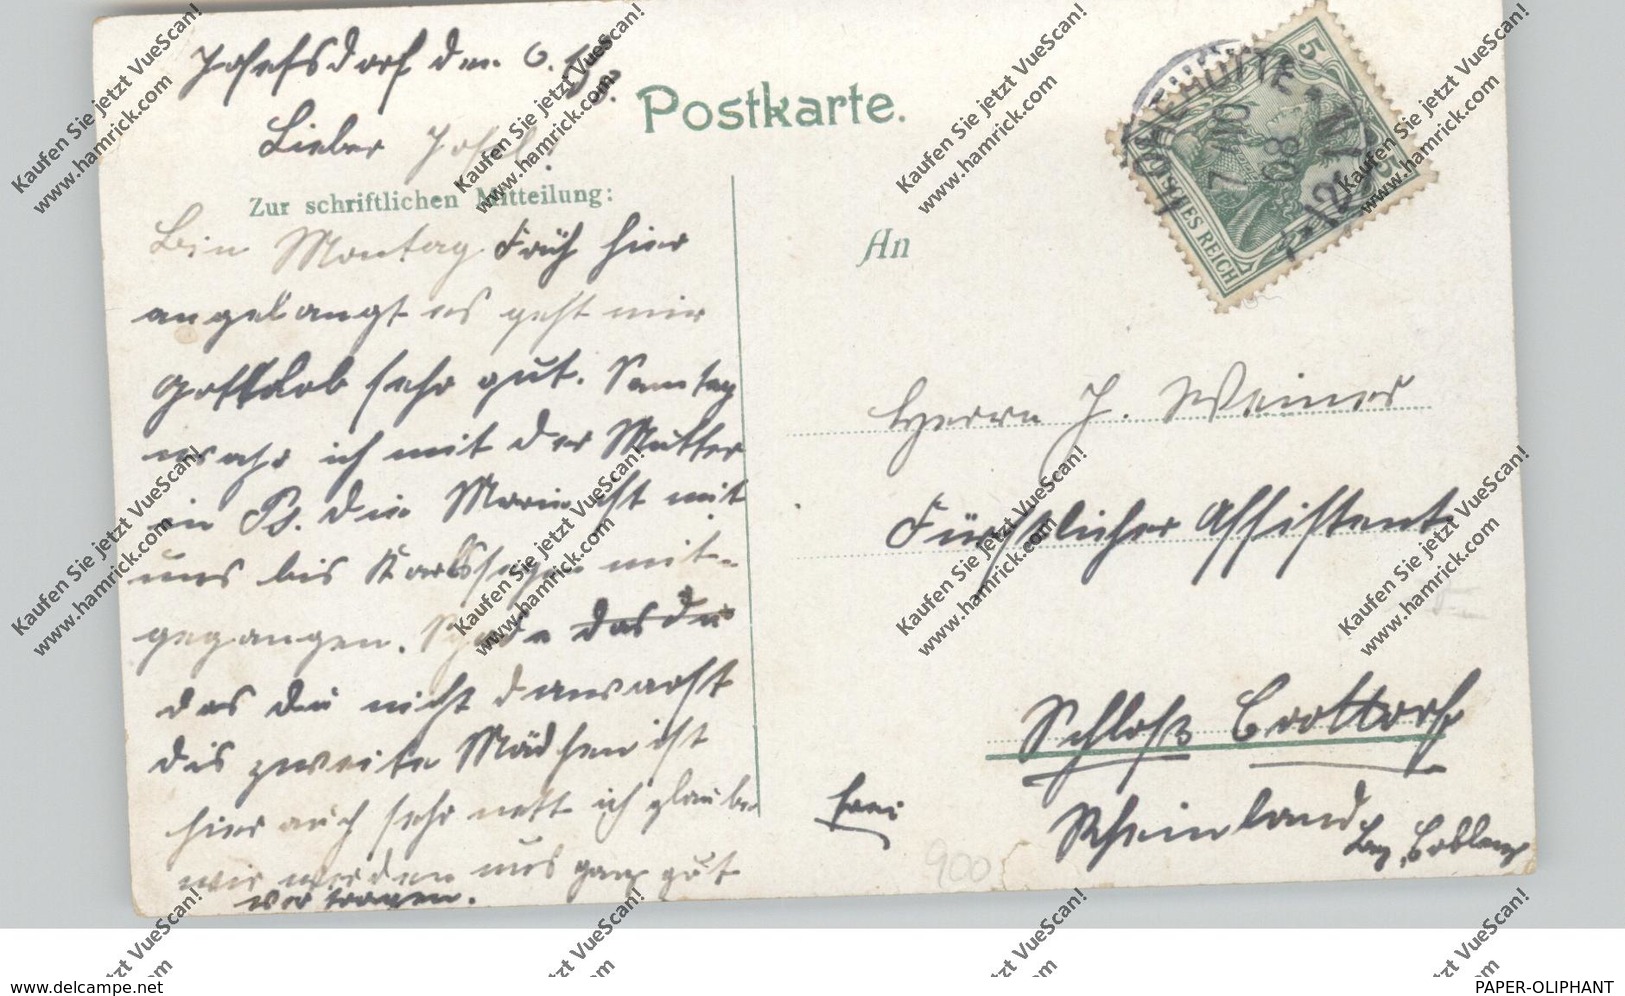 Josefsdorf den 6.
Lieber Josef!
Postkarte.
Zur schriftlichen Mitteilung:
Bin Montag Früh hier
angelangt es geht mir
gottlob sehr gut. Samstag
wahr ich mit der Mutter
in die Marie ist mit
uns bis mit-
gegangen. Schade das du
das du nicht da warst
die zweite Mädchen ist
hier auch sehr nett ich glaube
wir werden uns ganz gut
vertragen.
An
Herrn J. Weimer
Fürstlicher Assistent
Schloß Crottorf
Rheinland
Bez. Coblenz
frei
900
5
5
DEUTSCHES REICH
7 10
08
* 12-1 N
Kaufen Sie jetzt VueScan!
www.hamrick.com
www.delcampe.net
PAPER-OLIPHANT